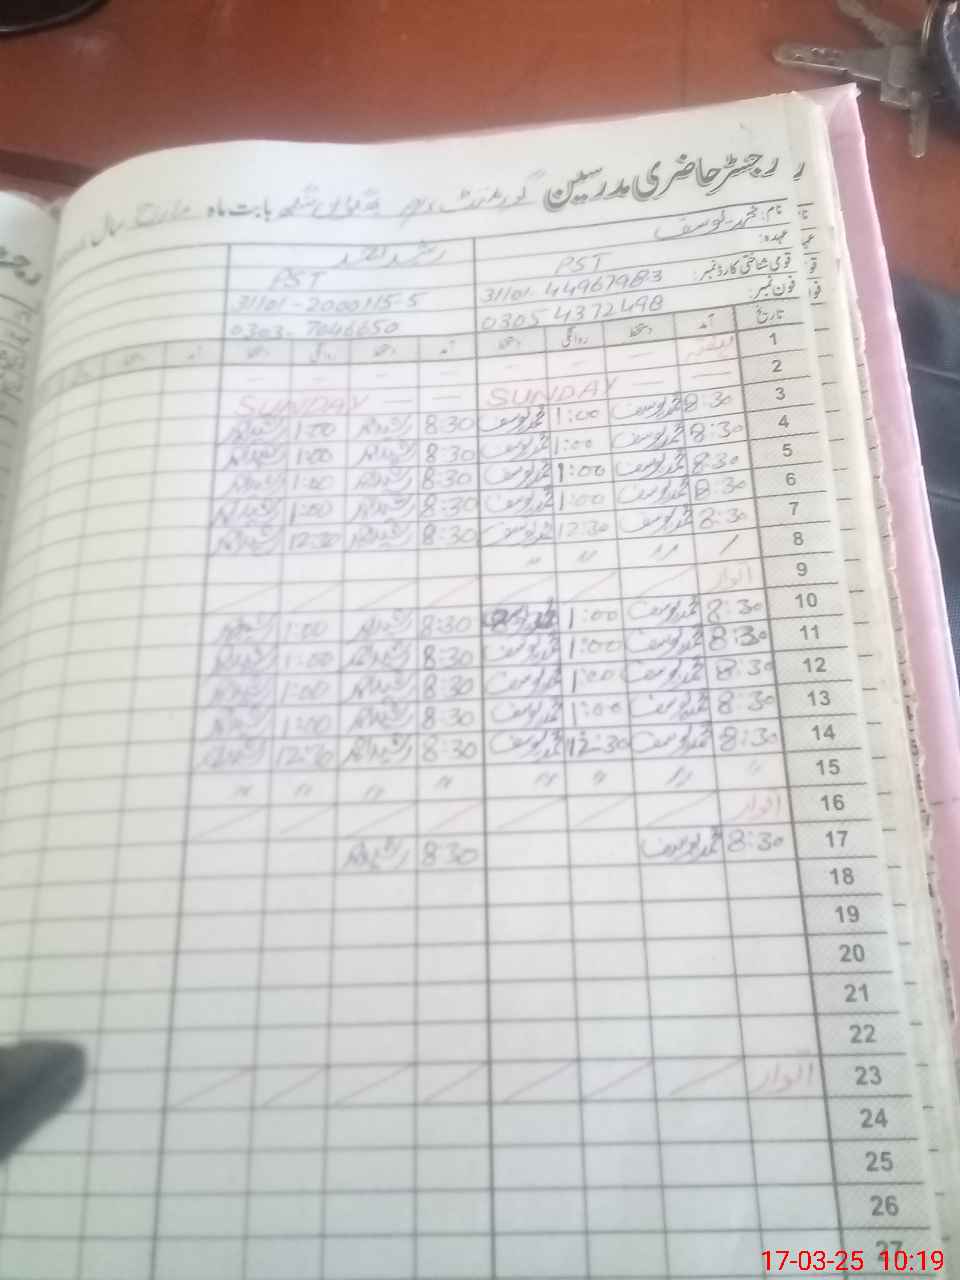 رجسٹر حاضری مدرسین گورنمنٹ بابت ماہ مارچ سال
نام: محمد یوسف رشید احمد
عہدہ: PST PST
قومی شناختی کارڈ نمبر: 31101-4496798-3 31101-2000115-5
فون نمبر: 0305 4372498 0303-7046650
تاریخ آمد دستخط روانگی دستخط آمد دستخط روانگی دستخط
1 — — — — — —
2 — — SUNDAY — — SUNDAY
3 8:30 محمد یوسف 1:00 محمد یوسف 8:30 رشید احمد 1:00 رشید احمد
4 8:30 محمد یوسف 1:00 محمد یوسف 8:30 رشید احمد 1:00 رشید احمد
5 8:30 محمد یوسف 1:00 محمد یوسف 8:30 رشید احمد 1:00 رشید احمد
6 8:30 محمد یوسف 1:00 محمد یوسف 8:30 رشید احمد 1:00 رشید احمد
7 8:30 محمد یوسف 12:30 محمد یوسف 8:30 رشید احمد 12:30 رشید احمد
8 〃 〃 〃
9 اتوار
10 8:30 محمد یوسف 1:00 8:30 رشید احمد 1:00 رشید احمد
11 8:30 محمد یوسف 1:00 محمد یوسف 8:30 رشید احمد 1:00 رشید احمد
12 8:30 محمد یوسف 1:00 محمد یوسف 8:30 رشید احمد 1:00 رشید احمد
13 8:30 محمد یوسف 1:00 محمد یوسف 8:30 رشید احمد 1:00 رشید احمد
14 8:30 محمد یوسف 12:30 محمد یوسف 8:30 رشید احمد 12:30 رشید احمد
15 〃 〃 〃 〃 〃 〃 〃 〃
16 اتوار
17 8:30 محمد یوسف 8:30 رشید احمد
18
19
20
21
22
23 اتوار
24
25
26
27
17-03-25 10:19